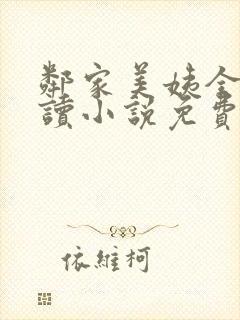 鄰家美姨全
讀小說免費
依維柯